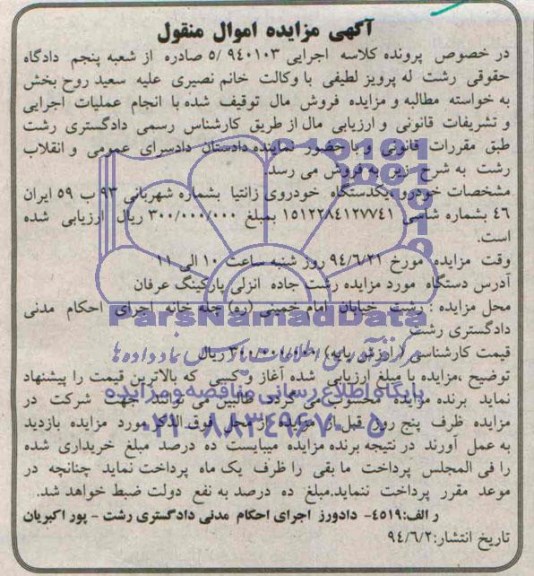 آگهی مزایده اموال منقول
در خصوص پرونده کلاسه اجرایی ۹۴۰۱۰۳ /۵ صادره از شعبه پنجم دادگاه
حقوقی رشت له پرویز لطیفی با وکالت خانم نصیری علیه سعید روح بخش
به خواسته مطالبه و مزایده فروش مال توقیف شده با انجام عملیات اجرایی
و تشریفات قانونی و ارزیابی مال از طریق کارشناس رسمی دادگستری رشت
طبق مقررات قانونی و با حضور نماینده دادستان دادسرای عمومی و انقلاب
رشت به شرح زیر به فروش می رسد.
مشخصات خودرو یکدستگاه خودروی زانتیا بشماره شهربانی ۹۳ ب ۵۹ ایران
۴۶ بشماره شاسی ۱۵۱۲۲۸۴۱۲۷۷۴۱ بمبلغ ۳۰۰/۰۰۰/۰۰۰ ریال ارزیابی شده
است.
وقت مزایده مورخ ۹۴/۶/۲۱ روز شنبه ساعت ۱۰ الی ۱۱
آدرس دستگاه مورد مزایده رشت جاده انزلی پارکینگ عرفان
محل مزایده : رشت خیابان امام خمینی (ره) چله خانه اجرای احکام مدنی
ParsNamadData
دادگستری رشت
مرکز فرآوری اطلاعات پارس نماد داده ها
قیمت کارشناسی (ارزش پایه) ریال
توضیح ،مزایده با مبلغ ارزیابی شده آغاز و کسی که بالاترین قیمت را پیشنهاد
پایگاه اطلاع رسانی مناقصه و مزایده
نماید برنده مزایده محسوب می گردد طالبین می توانند جهت شرکت در
مزایده ظرف پنج روز قبل از مزایده از محل فوق الذکر مورد مزایده بازدید
۰۲۱-۸۸۳۴۹۶۷۰-۵
به عمل آورند در نتیجه برنده مزایده میبایست ده درصد مبلغ خریداری شده
را فی المجلس پرداخت ما بقی را ظرف یک ماه پرداخت نماید چنانچه در
موعد مقرر پرداخت ننماید.مبلغ ده درصد به نفع دولت ضبط خواهد شد.
ر الف:۴۵۱۹- دادورز اجرای احکام مدنی دادگستری رشت - پور اکبریان
تاریخ انتشار:۹۴/۶/۲